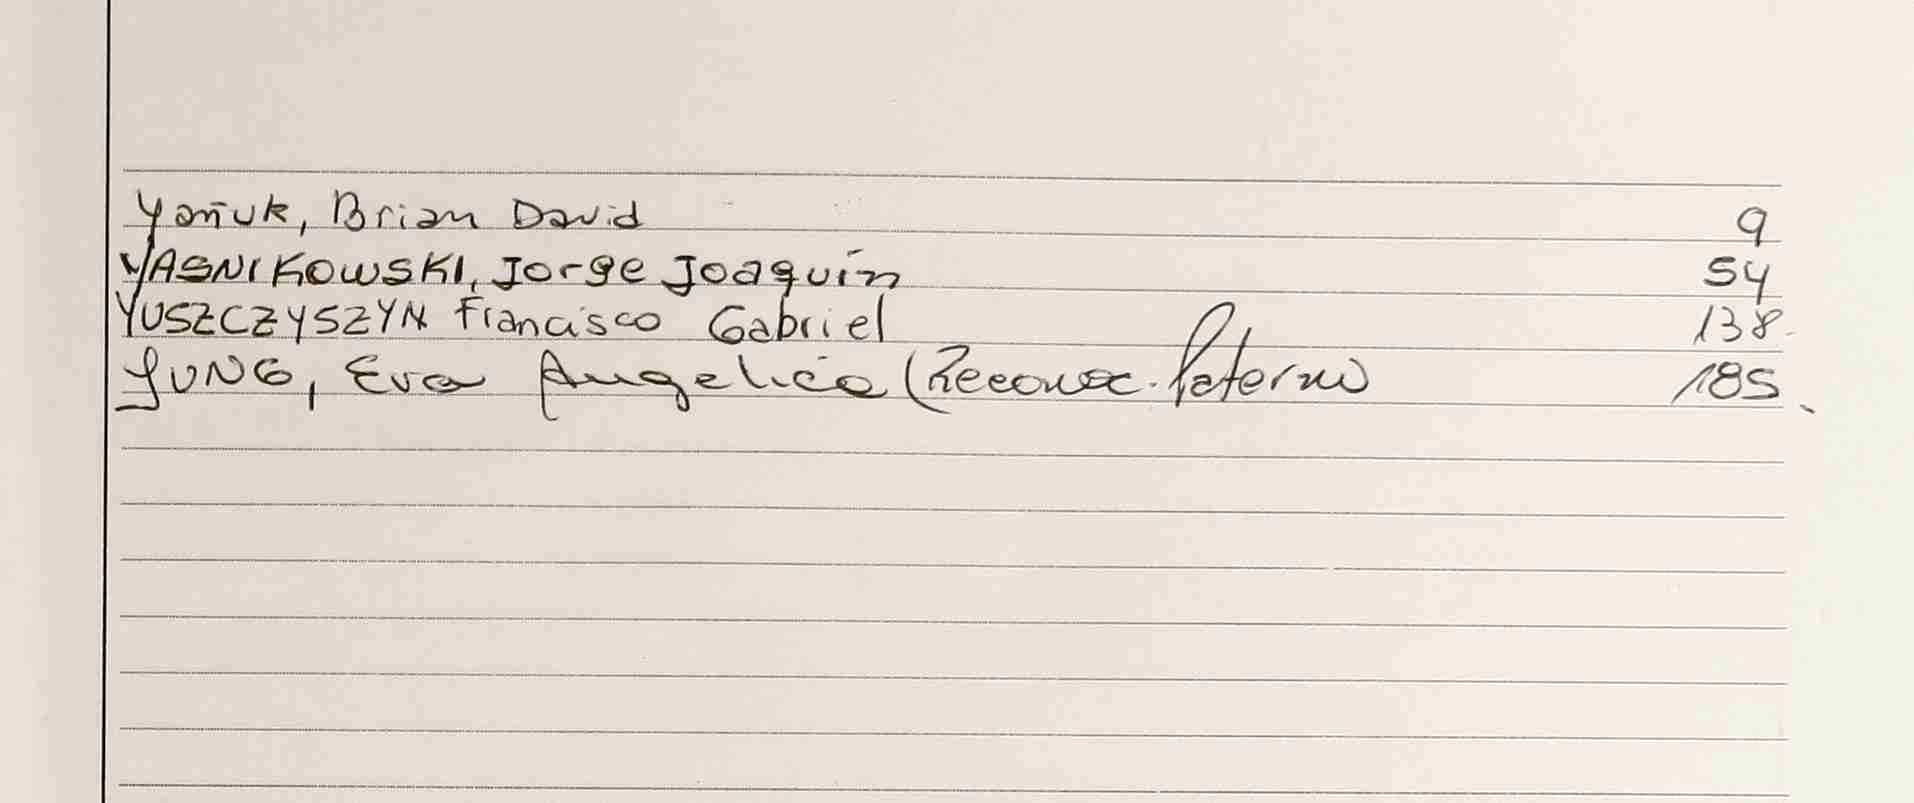 Yañuk, Brian David 9
YASNIKOWSKI, Jorge Joaquín 54
YUSZCZYSZYN Francisco Gabriel 138
YUNG, Eva Angelica (Reconoc. Paterno 185